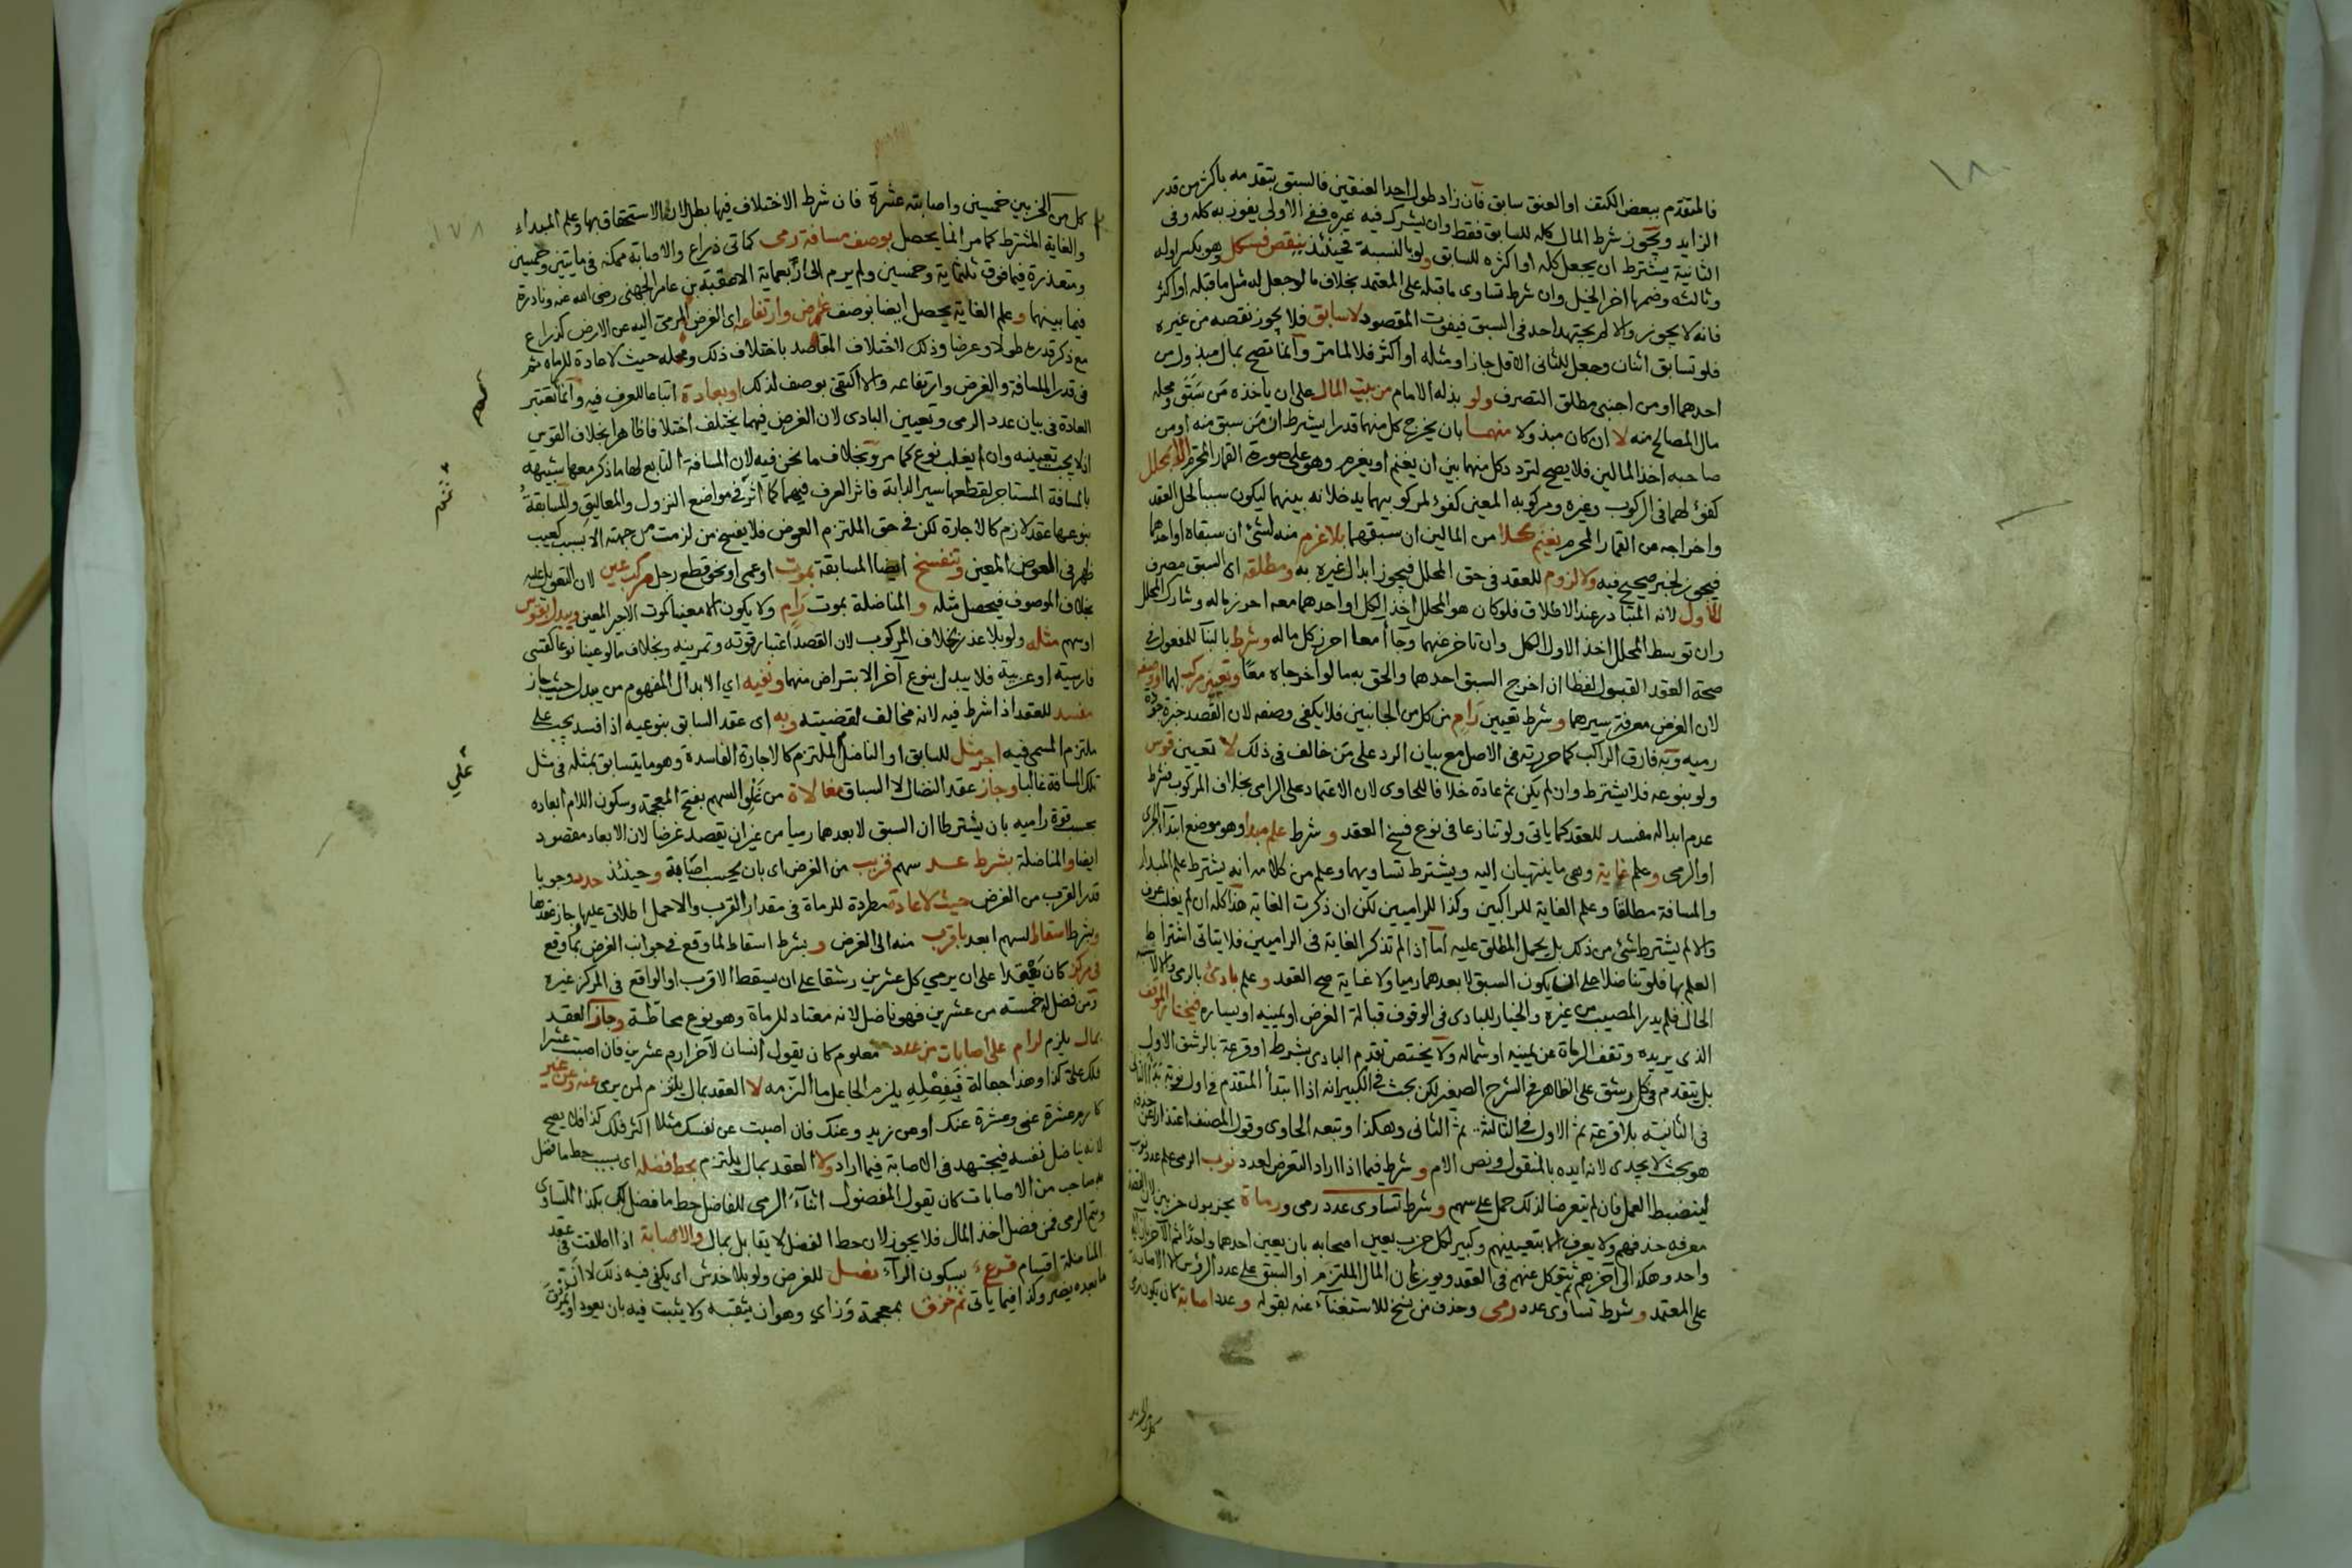 فالمتقدم ببعض الكتف او العنق سابق فان زاد طول احد العنقين فالسبق بتقدمه باكثر من قدر
الزايد ويجوز شرط المال كله للسابق فقط وان يشرك فيه غيره ففي الاولى يفوز به كله وفى
الثانية يشترط ان يجعل كله او اكثره للسابق ولو بالنسبة فحينئذ ينقص فسكل وهو بكسر اوله
وثالثه وضمها اخر الخيل وان شرط تساوى ما قبله على المعتمد بخلاف ما لو جعل له مثل ما قبله او اكثر
فانه لا يجوز والا لم يجتهد احد فى السبق فيفوت المقصود لا سابق فلا يجوز نقصه من غيره
فلو تسابق اثنان وجعل للثانى الاقل جاز او مثله او اكثر فلا لما مر وانما تصح بمال مبذول من
احدهما او من اجنبى مطلق التصرف ولو بذله الامام من بيت المال على ان ياخذه من سبق ومحله
مال المصالح منه لا ان كان مبذولا منهما بان يخرج كل منهما قدرا بشرط ان من سبق منه او من
صاحبه اخذ المالين فلا يصح لتردد كل منهما بين ان يغنم او يغرم وهو على صورة القمار المحرم الا بمحلل
كفؤ لهما فى الركوب وغيره ومركوبه المعين كفؤ لمركوبيهما يدخلانه بينهما ليكون سببا لحل العقد
واخراجه من القمار المحرم يغنم كلا من المالين ان سبقهما بلا غرم منه لشئ ان سبقاه او احدهما
فيجوز لخبر صحيح فيه ولا لزوم للعقد فى حق المحلل فيجوز ابدال غيره به ومطلقه اى السبق مصرف
للأول لانه المتبادر عند الاطلاق فلو كان هو المحلل اخذ الكل او احدهما معه احرز ماله وشارك المحلل
وان توسط المحلل اخذ الاول الكل وان تاخر عنهما وجاآ معا احرز كل ماله وشرط بالبنآ للمفعول فى
صحة العقد القبول لفظا ان اخرج السبق احدهما والحق به ما لو اخرجاه معًا وتعيين مركب لهما او وصفه
لان الغرض معرفة سيرهما وشرط تعيين رامٍ من كل من الجانبين فلا يكفى وصفه لان القصد خبرة جودة
رميه وبه فارق الراكب كما حررته فى الاصل مع بيان الرد على من خالف فى ذلك لا تعيين قوس
ولو بنوعه فلا يشترط وان لم يكن ثم عادة خلافا للحاوى لان الاعتماد على الرامى بخلاف المركوب فشرط
عدم ابداله مفسد للعقد كما ياتى ولو تنازعا فى نوع فسخ العقد وشرط علم مبدا وهو موضع ابتدآ الجرى
او الرمى وعلم غاية وهى ما ينتهيان اليه ويشترط تساويهما وعلم من كلامه انه يشترط علم المبدا
والمسافة مطلقا وعلم الغاية للراكبين وكذا للراميين لكن ان ذكرت الغاية هذا كله ان لم يغلب عرف
والا لم يشترط شئ من ذلك بل يحمل المطلق عليه اما اذا لم تذكر الغاية فى الراميين فلا يتاتى اشتراط
العلم بها فلو تناضلا على ان يكون السبق لابعدهما رميا ولا غاية صح العقد وعلم بادئ بالرمى والا لاشتبه
الحال فلم يدر المصيب من غيره والخيار للبادى فى الوقوف قبالة الغرض او يمينه او يساره فيختار الموقف
الذى يريده وتقف الرماة عن يمينه او شماله ولا يختص تقدم البادى بشرط او قرعة بالرشق الاول
بل يتقدم فى كل رشق على الظاهر فى الشرح الصغير لكن بحث فى الكبير انه اذا ابتدأ المتقدم فى اول نوبة بدأ الثانى
فى الثانية بلا قرعة ثم الاول فى الثالثة ثم الثانى وهكذا وتبعه الحاوى وقول المصنف اعتذارا عن حذفه
هو بحث لا يجدى لانه ايده بالمنقول ونص الام وشرط فيما اذا اراد التعرض لعدد نوب الرمى علم عدد نوب
لينضبط العمل فان لم يتعرضا لذلك حمل على سهم وشرط تساوى عدد رمى ورماة يحزبون حزبين لان القصد
معرفة حذقهم ولا يعرف الا بتعيينهم وكبير لكل حزب يعين اصحابه بان يعين احدهما واحدًا ثم الآخر بازآئه
واحد وهكذا الى آخرهم ثم يتوكل عنهم فى العقد ويوزعان المال الملتزم او السبق على عدد الرؤس لا الاصابة
على المعتمد وشرط تساوى عدد رمى وحذف من نسخ للاستغنآء عنه بقوله وعدد اصابة كان يكون رمى
كل من الحزبين
كل من الحزبين خمسين واصابته عشرة فان شرط الاختلاف فيها بطل لان الاستحقاق بها وعلم المبداء
والغاية المشترط كما مر انما يحصل بوصف مسافة رمى كمائتى ذراع والاصابة ممكنة فى مايتين وخمسين
ومتعذرة فيما فوق ثلثماية وخمسين ولم يرم الى اربعماية الا عقبة بن عامر الجهنى رضى الله عنه ونادرة
فيما بينهما وعلم الغاية يحصل ايضا بوصف غرض وارتفاعه اى الغرض المرمى اليه عن الارض كذراع
مع ذكر قدره طولا وعرضا وذلك لاختلاف المقاصد باختلاف ذلك ومحله حيث لا عادة للرماة ثم
فى قدر المسافة والغرض وارتفاعه والا اكتفى بوصف لذلك او بعادة اتباعا للعرف فيه وانما تعتبر
العادة فى بيان عدد الرمى وتعيين البادى لان الغرض فيهما يختلف اختلافا ظاهرا بخلاف القوس
اذ لا يجب تعيينه وان لم يغلب نوع كما مر وبخلاف ما نحن فيه لان المسافة التابع لها ما ذكر معها شبيهة
بالمسافة المستاجر لقطعها سير الدابة فاثر العرف فيهما كما اثر فى مواضع النزول والمعاليق والمسابقةُ
بنوعيها عقد لازم كالاجارة لكن فى حق الملتزم العوض فلا يفسخ من لزمت من جهته الا بسبب كعيب
ظهر فى العوض المعين وتنفسخ ايضا المسابقة بموت او عمى او نحو قطع رجل مركب عين لان التعويل عليه
بخلاف الموصوف فيحصل مثله و المناضلة بموت رَامٍ ولا يكون الا معينا كموت الاجير المعين ويبدل قوس
او سهم مثله ولو بلا عذر بخلاف المركوب لان القصد اعتبار قوته وتمرينه وبخلاف ما لو عينا نوعا كقسى
فارسية او عربية فلا يبدل بنوع آخر الا بتراض منهما ونفيه اى الابدال المفهوم من يبدل حيث جاز
مفسد للعقد اذا شرط فيه لانه مخالف لقضيته وبه اى عقد السابق بنوعيه اذا فسد يجب على
ملتزم المسمى فيه اجر مثل للسابق او الناضل الملتزم كالاجارة الفاسدة وهو ما يتسابق بمثله فى مثل
تلك المسافة غالبا وجاز عقد النضال لا السباق مغالاة من غلو السهم بفتح المعجمة وسكون اللام ابعاده
بحسب قوة راميه بان يشترطا ان السبق لابعدهما رميا من غير ان يقصد غرضا لان الابعاد مقصود
ايضا والمناضلة بشرط عد سهم قريب من الغرض اى بان يحسب اصابة وحينئذ حدد وجوبا
قدر القرب من الغرض حيث لا عادة مطردة للرماة فى مقدار القرب والا حمل اطلاق عليها جاز عقدها
وبشرط اسقاط لسهم ابعد باقرب منه الى الغرض و بشرط اسقاط لما وقع فى جوانب الغرض بما وقع
فى مركز كان يعقدا على ان يرمى كل عشرين رشقا على ان يسقط الاقرب او الواقع فى المركز غيره
ومن فضل له خمسة من عشرين فهو ناضل لانه معتاد للرماة وهو نوع محاطة وجاز العقد
بمال يلزم لرام على اصابات من عدد معلوم كان يقول انسان لآخر ارم عشرين فان اصبت عشرا
فلك على كذا وهذا جعالة فبفضله يلزم الجاعل ما التزمه لا العقد بمال يلتزم لمن يرمى عنه وعن غير
كارم عشرة عنى وعشرة عنك او عن زيد وعنك فان اصبت عن نفسك مثلا اكثر فلك كذا فلا يصح
لانه يناضل نفسه فيجتهد فى الاصابة فيما اراد ولا العقد بمال يلتزم بحط فضله اى بسبب حط ما فضل
به صاحبه من الاصابات كان يقول المفضول اثنآء الرمى للفاضل حط ما فضل لك بكذا لنتساوى
ونتم الرمى فمن فضل اخذ المال فلا يجوز لان حط الفضل لا يقابل بمال والاصابة اذا اطلقت فى عقد
المناضلة اقسام قرعٌ بسكون الرآء نصل للغرض ولو بلا خدش اى يكفى فيه ذلك لا ان
ما بعده يضر وكذا فيما ياتى ثم خزق بمعجمة وزاى وهو ان يثقبه ولا يثبت فيه بان يعود او يمرق